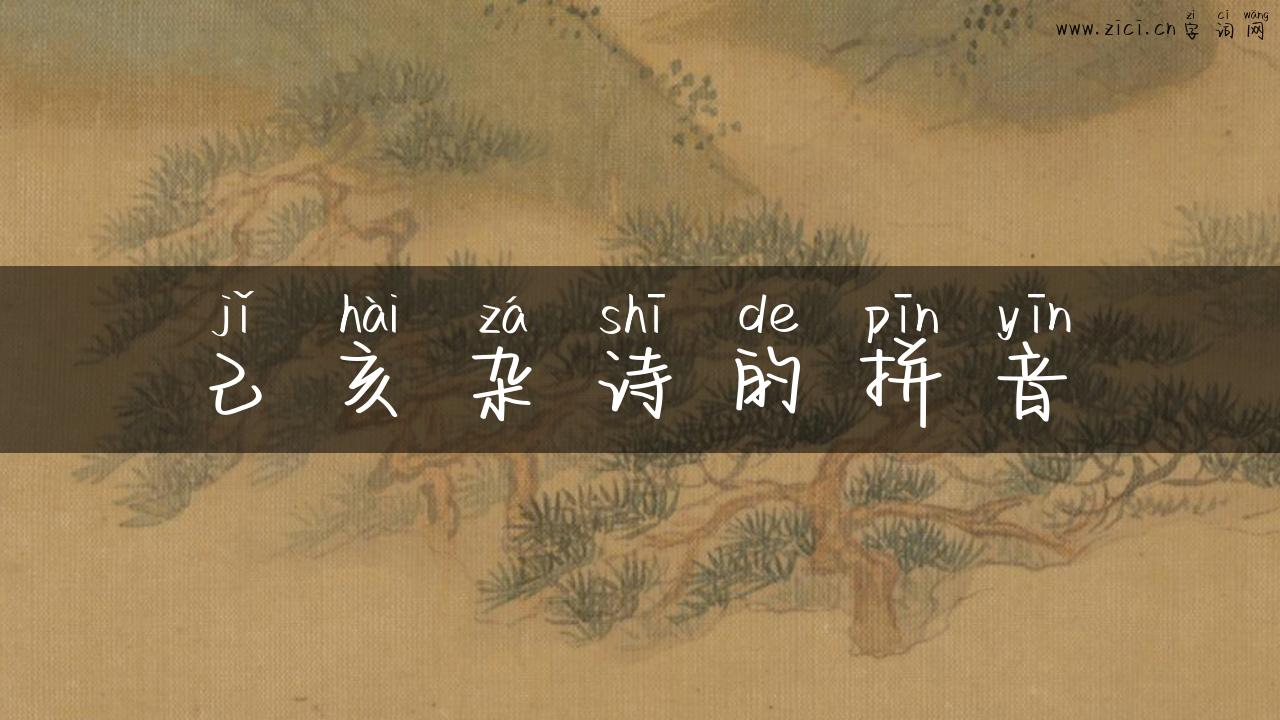 zì cí wǎng
www.zici.cn 字 词 网
jǐ hài zá shī de pīn yīn
己 亥 杂 诗 的 拼 音